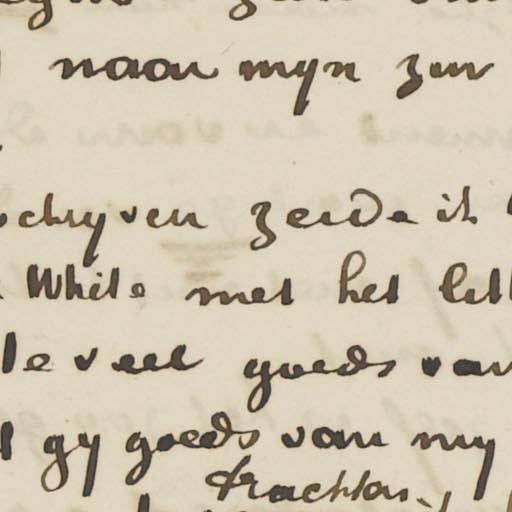 naar myn zin
schryven zeide ik
White met het
te veel goeds van
gy goeds van my
trachten